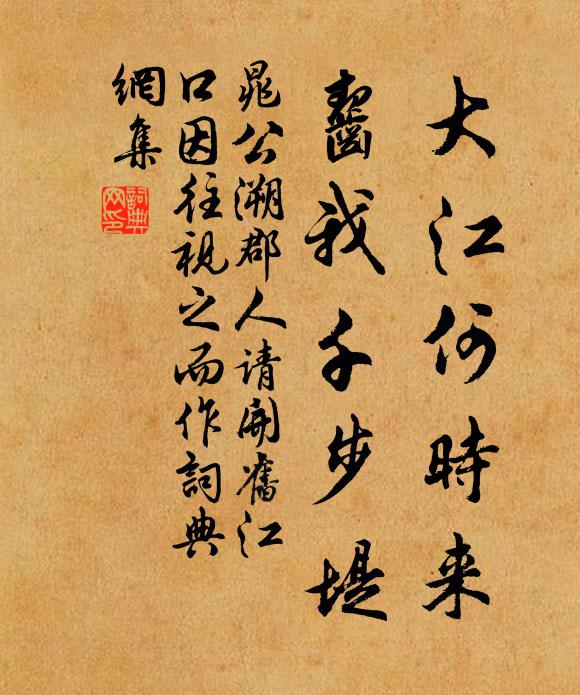 大江何時来
齧我千步堤
晁公溯郡人請開舊江
口因往視之而作詞典
網集
詞典
网印